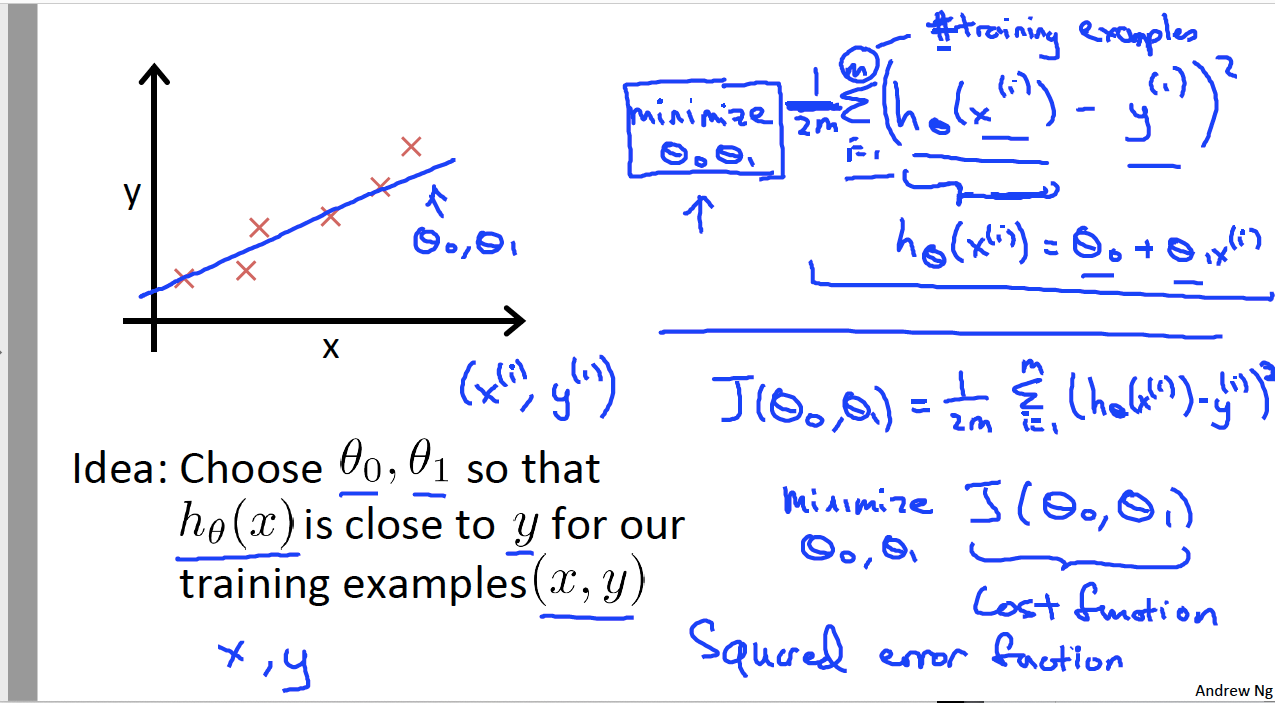 y
x
θ₀, θ₁
(x⁽ⁱ⁾, y⁽ⁱ⁾)
Idea: Choose θ₀, θ₁ so that
hθ(x) is close to y for our
training examples (x, y)
x, y
#training examples
minimize 1/2m m Σ i=1 (hθ(x⁽ⁱ⁾) - y⁽ⁱ⁾)²
θ₀ θ₁
hθ(x⁽ⁱ⁾) = θ₀ + θ₁x⁽ⁱ⁾
J(θ₀, θ₁) = 1/2m m Σ i=1 (hθ(x⁽ⁱ⁾) - y⁽ⁱ⁾)²
minimize J(θ₀, θ₁)
θ₀, θ₁
Cost function
Squared error function
Andrew Ng